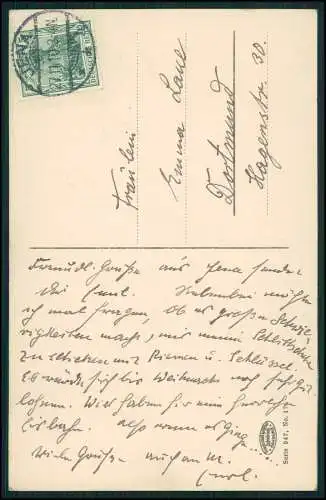 JENA
Fräulein
Emma Laue
Dortmund
Hagenstr. 30.
Freundl. Grüße aus Jena sendet
Dir Emil. Nebenbei möchte
ich mal fragen, ob es große Schwie
rigkeiten macht, mir meine Schlittschuhe
zu schicken mit Riemen u. Schlüssel.
Es würde sich bis Weihnacht noch sehr gut
lohnen. Wir haben hier eine herrliche
Eisbahn. Also wenn es ginge.....
Viele Grüße auch an M.
Emil.
Serie 947. No. 17